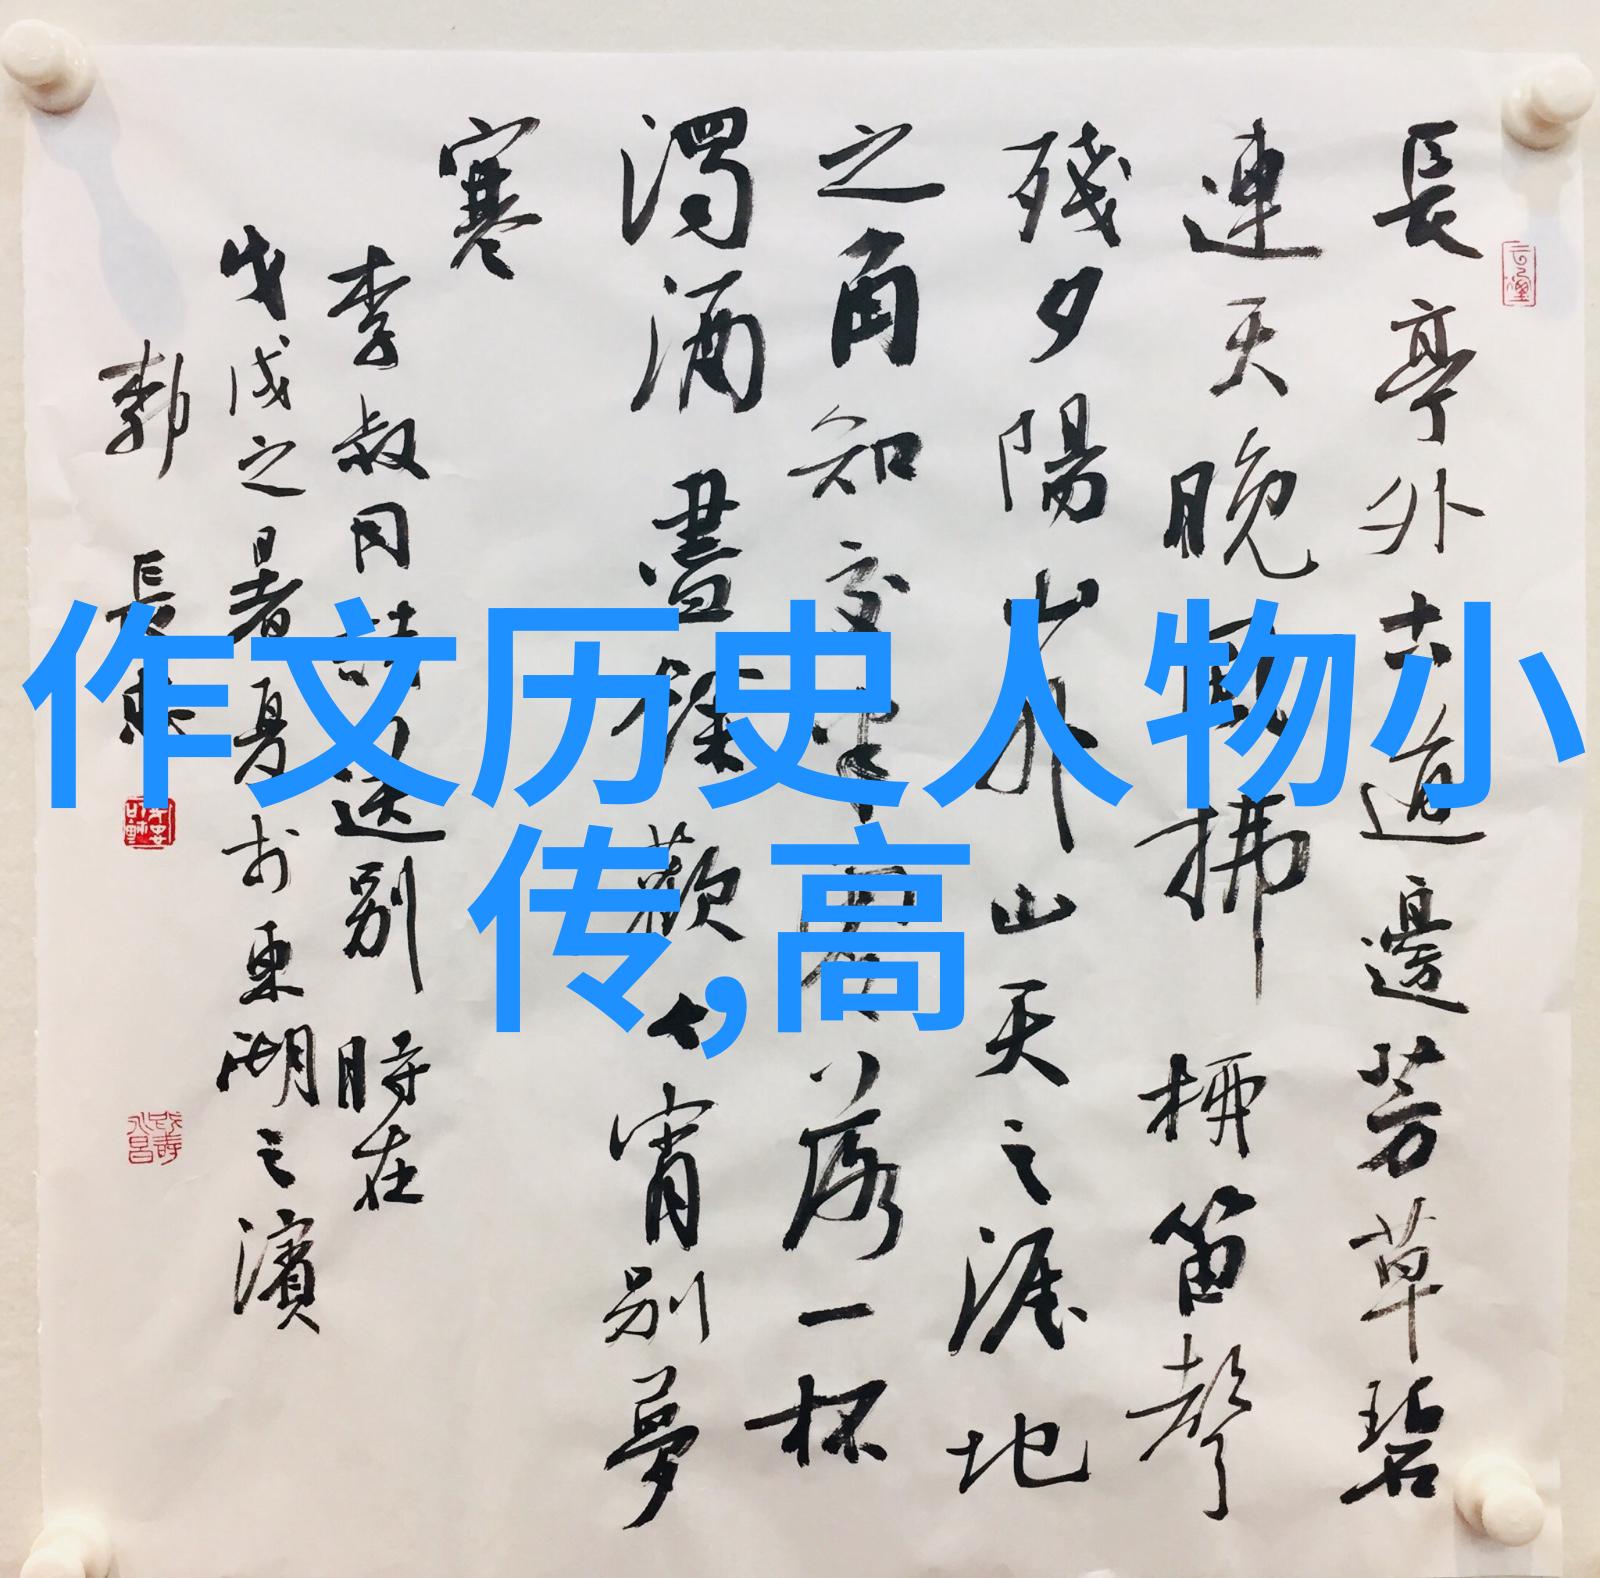 作文历史人物小
传,高
長亭外古道邊芳草碧
連天晚風拂柳笛聲
殘夕陽山外山天之涯地
之角知交半零落一杯
濁酒盡餘歡今宵別夢
寒
李叔同詩送别 時在
戊戌之暑夏於東湖之濱
長